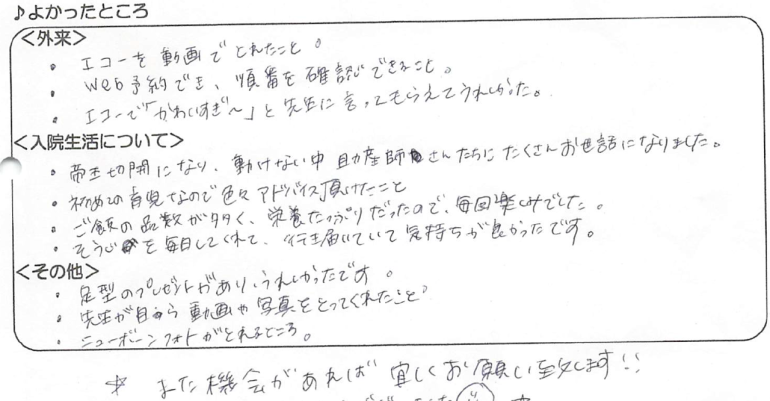 ♪よかったところ
<外来>
・ エコーを動画でとれたこと。
・ web予約でき、順番を確認できること。
・ エコーで「かわいすぎ〜」と先生に言ってもらえてうれしかった。
<入院生活について>
・ 帝王切開になり、動けない中 助産師さんたちにたくさんお世話になりました。
・ 初めての育児なので色々アドバイス頂けたこと
・ ご飯の品数が多く、栄養たっぷりだったので、毎回楽しみでした。
・ そうじを毎日してくれて、行き届いていて気持ちが良かったです。
<その他>
・ 足型のプレゼントがあり、うれしかったです。
・ 先生が自ら動画や写真をとってくれたこと
・ ニューボーンフォトがとれるところ。
* また機会があれば宜しくお願い致します!!